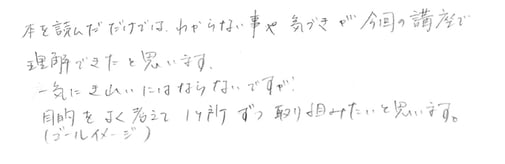 本を読んだだけでは、わからない事や気づきが今回の講座で
理解できたと思います。
一気にきれいにはならないですが、
目的をよく考えて1ヶ所ずつ取り組みたいと思います。
(ゴールイメージ)